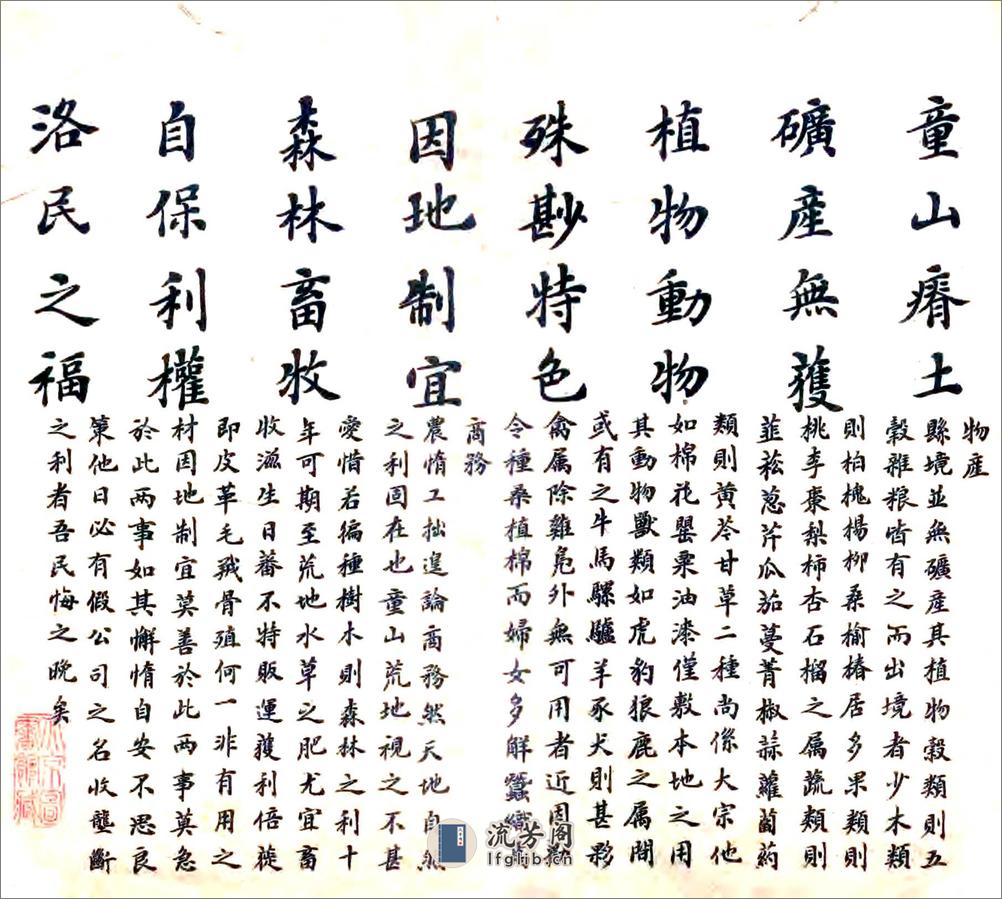 童山瘠土
礦產無獲
植物動物
殊尠特色
因地制宜
森林畜牧
自保利權
洛民之福
物產
縣境並無礦產其植物穀類則五
穀雜粮皆有之而出境者少木類
則柏槐楊柳桑榆椿居多果類則
桃李棗梨柿杏石榴之属蔬類則
韮菘葱芹瓜茄蔓菁椒蒜蘿蔔药
類則黄芩甘草二種尚係大宗他
如棉花罌粟油漆僅敷本地之用
其動物獸類如虎豹狼鹿之属間
或有之牛馬騾驢羊豕犬則甚夥
禽属除雞凫外無可用者近因勸
令種桑植棉而婦女多解蠶織
商務
農惰工拙遑論商務然天地自然
之利固在也童山荒地視之不甚
愛惜若徧種樹木則森林之利十
年可期至荒地水草之肥尤宜畜
收滋生日蕃不特販運獲利倍蓰
即皮革毛羢骨殖何一非有用之
材因地制宜莫善於此两事莫急
於此两事如其懈惰自安不思良
策他日必有假公司之名收壟斷
之利者吾民悔之晚矣
流芳阁
lfglib.cn